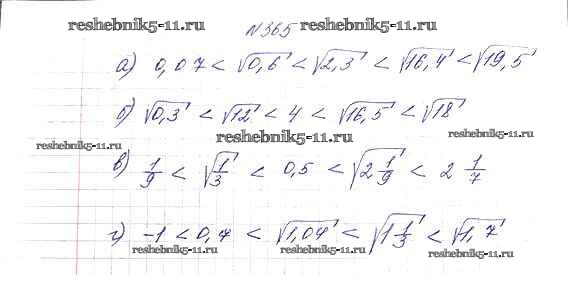 reshebnik5-11.ru
№365
reshebnik5-11.ru
а) 0,07 < √0,6 < √2,3 < √16,4 < √19,5
б) √0,3 < √12 < 4 < √16,5 < √18
reshebnik5-11.ru
reshebnik5-11.ru
reshebnik5-11.ru
в) 1/9 < √(1/3) < 0,5 < √(2 1/9) < 2 1/7
г) -1 < 0,7 < √1,04 < √(1 1/3) < √1,7
reshebnik5-11.ru
reshebnik5-11.ru